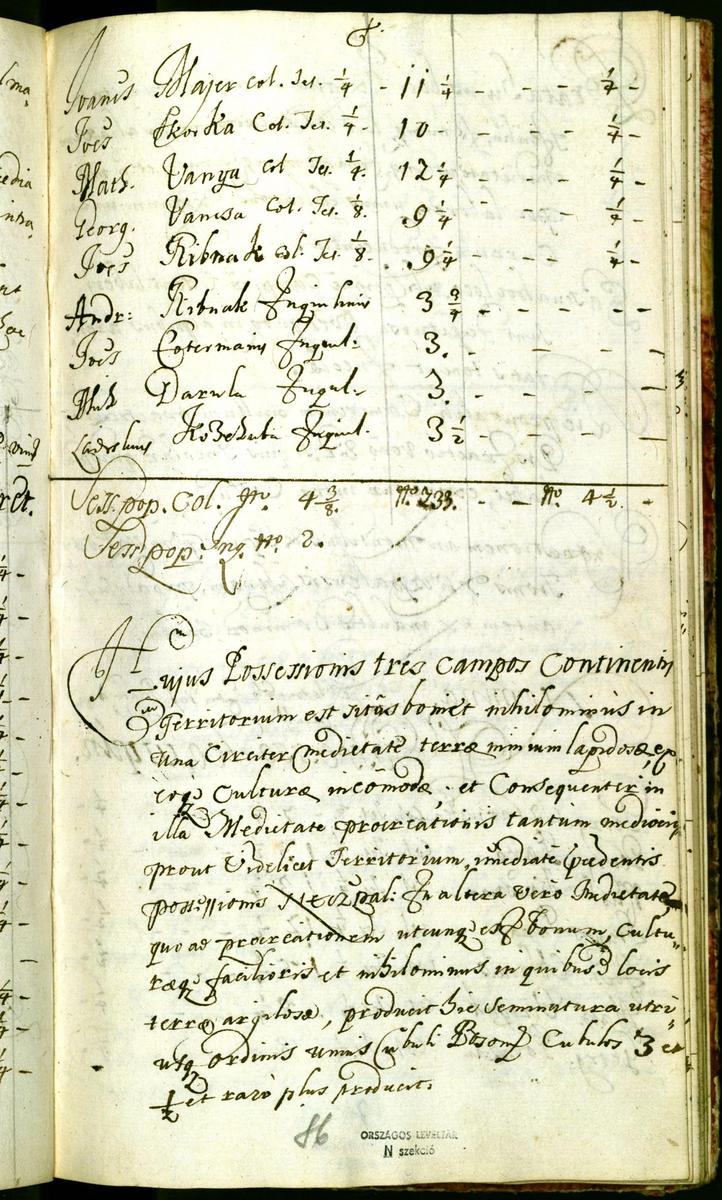 Joannis Majer Col. Ses. 1/4 - 11 1/4 - - - 1/4 -
Joes Skorka Col. Ses. 1/4 - 10 - - - - 1/4 -
Math. Vanya Col Ses. 1/4. 12 1/4 - - - 1/4 -
Georg. Vancsa Col. Ses. 1/8. 9 1/4 - - - 1/4 -
Joes Ribnak Col. Ses 1/8. 9 1/4 - - - 1/4 -
Andr: Ribnak Inquilinus 3 3/4 - - - -
Joes Inquil: 3. - - - -
Darula Inquil. 3. - - - -
Ladislaus Inquil. 3 1/2 - - - -
Sess. pop. Col. No. 4 3/8. No. 233. - - No. 4 1/2. -
Sess. pop. Inq. No. 8.
Hujus Possessionis tres Campos Continentis
Territorium est nihilominus in
una Circiter medietate terræ nimium lapidosæ, ex
eoq Culturæ incomodæ, et Consequenter in
illa Medietate procreationis tantum mediocris
prout Videlicet Territorium imediate præcedentis
possessionis Neczpal: In altera vero Medietate,
quo ad procreationem utcunq est bonum, Cultu-
ræq facilioris et nihilominus in quibusd locis
terræ argilosæ, producit hic Seminatura utri-
usq Ordinis unius Cubuli Poson Cubulos 3 et
1/2 et raro plus producit.
86
ORSZÁGOS LEVÉLTÁR
N szekció